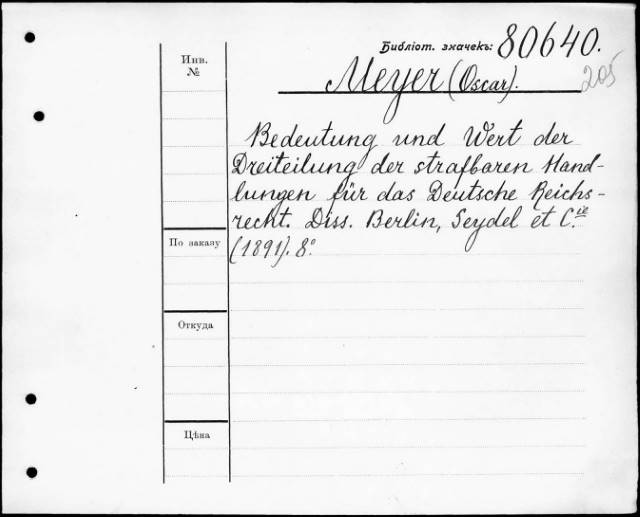 Библіот. значекъ: 80640.
Инв.
№
Meyer (Oscar).
205
Bedeutung und Wert der
Dreiteilung der strafbaren Hand-
lungen für das Deutsche Reichs-
recht. Diss. Berlin, Seydel et C.ie
(1891). 8°
По заказу
Откуда
Цѣна